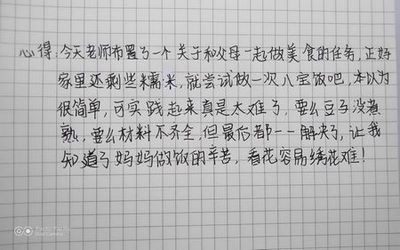 心得:今天老师布置了一个关于和父母一起做美食的任务,正好
家里还剩些糯米,就尝试做一次八宝饭吧,本以为
很简单,可实践起来真是太难了,要么豆子没煮
熟,要么材料不齐全,但最后都一一解决了,让我
知道了妈妈做饭的辛苦,看花容易绣花难!